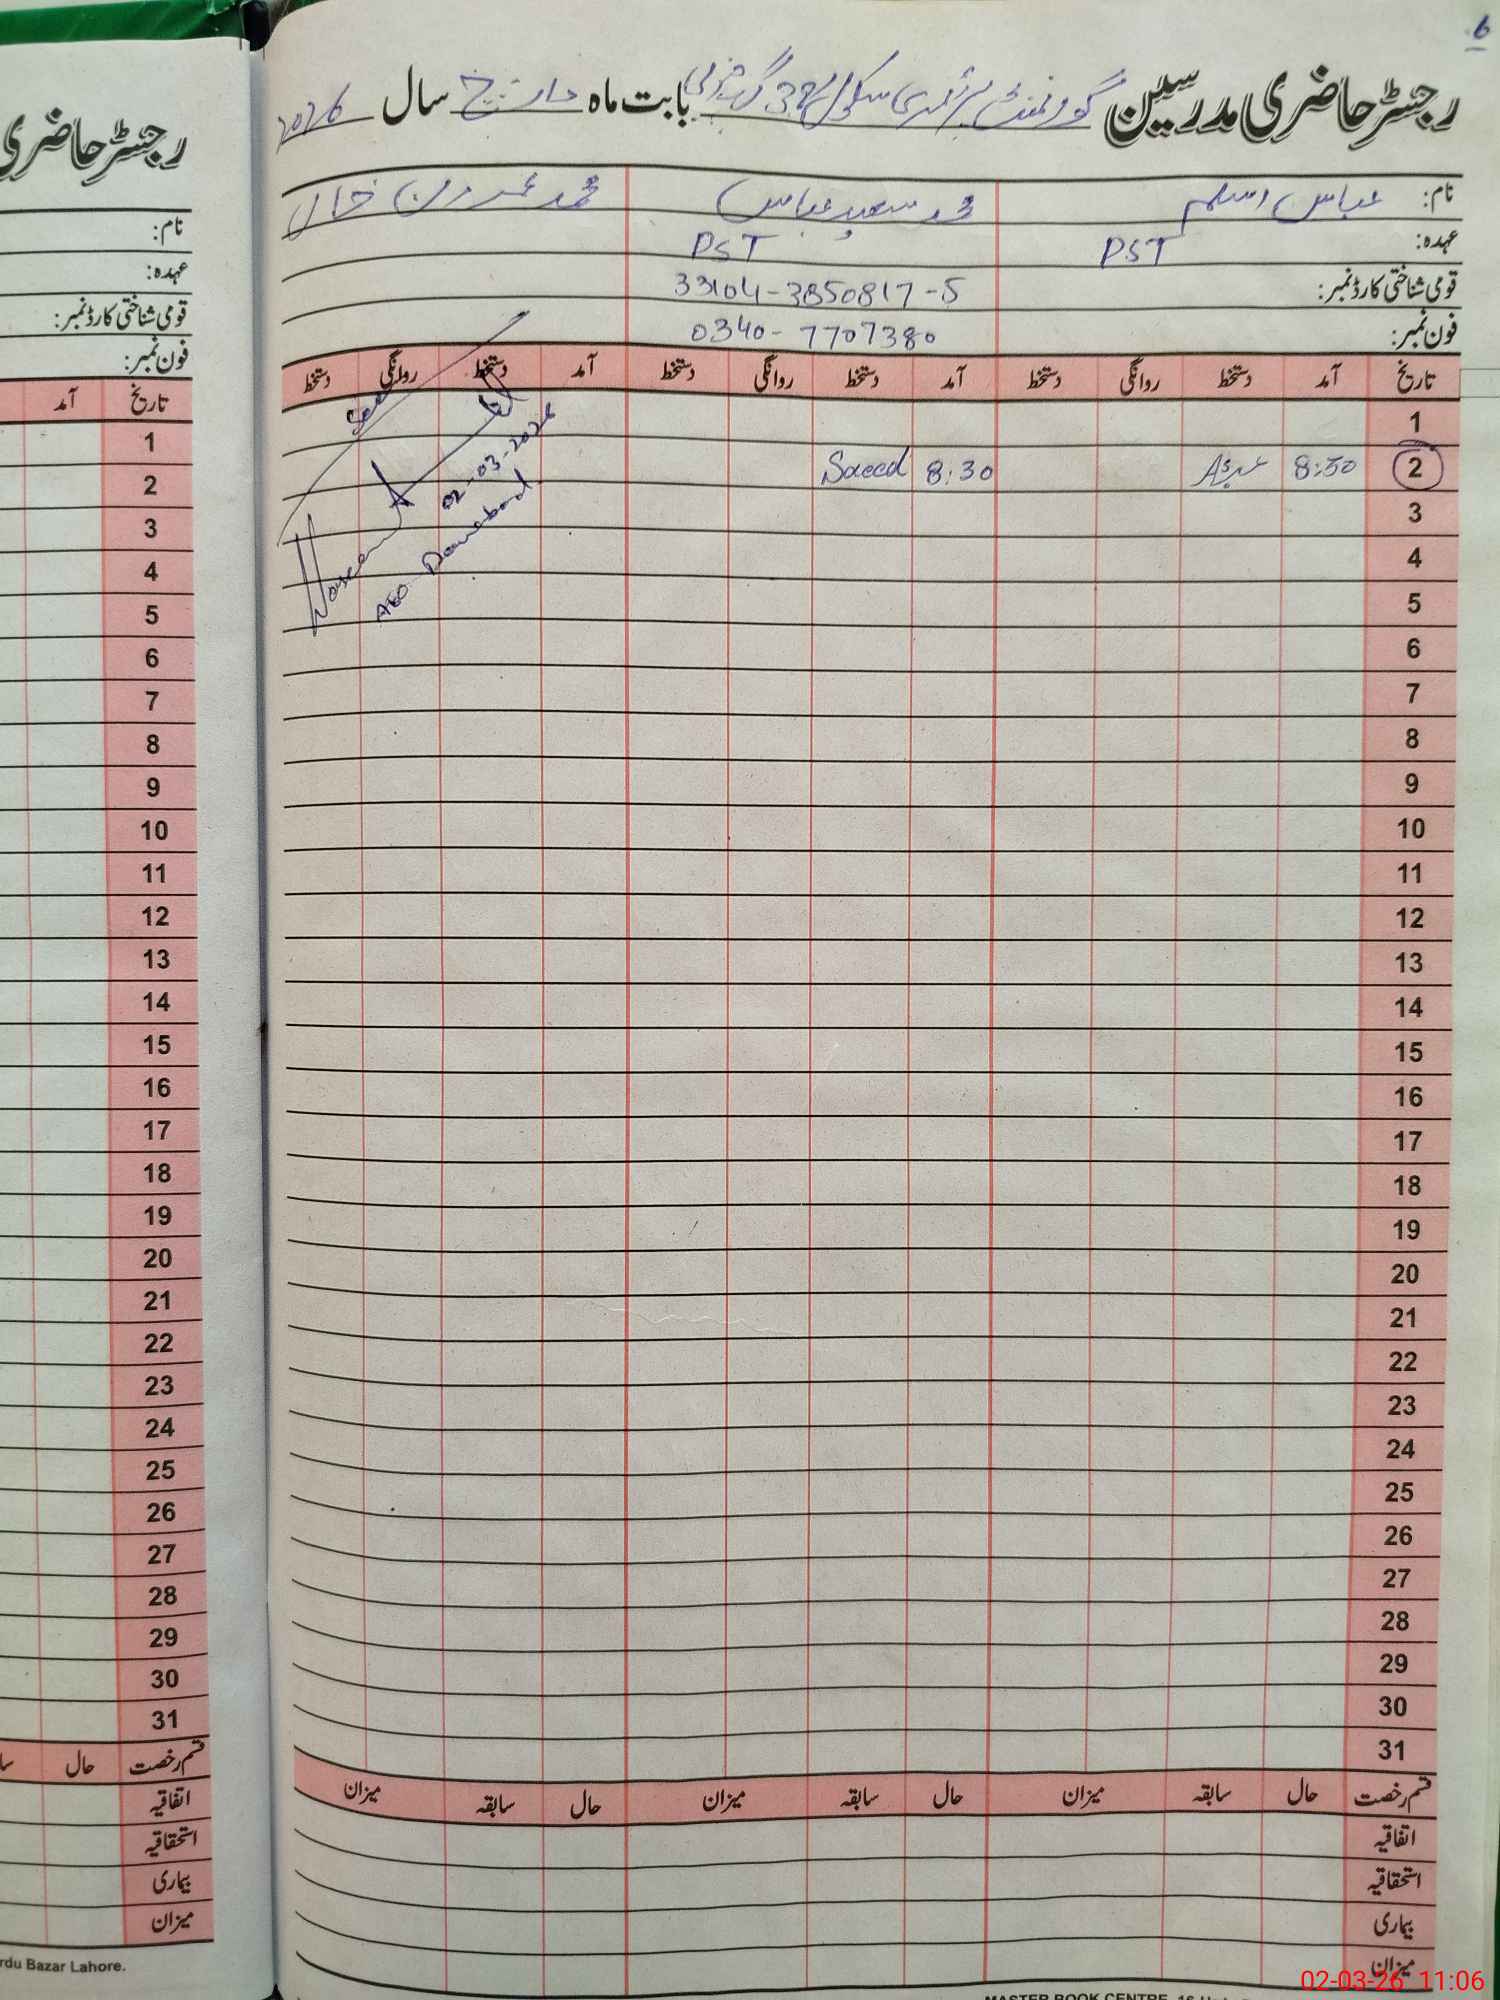 6
رجسٹر حاضری مدرسین گورنمنٹ پرائمری سکول 38 بابت ماہ مارچ سال 2026
نام: عباس اسلم محمد سعید عباس محمد خان
عہدہ: PST PST
قومی شناختی کارڈ نمبر: 33104-3850817-5
فون نمبر: 0340-7707380
تاریخ آمد دستخط روانگی دستخط آمد دستخط روانگی دستخط آمد دستخط روانگی دستخط
1
2 8:30 8:30 Saeed
3
4
5
6
7
8
9
10
11
12
13
14
15
16
17
18
19
20
21
22
23
24
25
26
27
28
29
30
31
قسم رخصت حال سابقہ میزان حال سابقہ میزان حال سابقہ میزان
اتفاقیہ
استحقاقیہ
بیماری
میزان
See
02-03-2026
AEO
رجسٹر حاضری
نام:
عہدہ:
قومی شناختی کارڈ نمبر:
فون نمبر:
تاریخ آمد
1
2
3
4
5
6
7
8
9
10
11
12
13
14
15
16
17
18
19
20
21
22
23
24
25
26
27
28
29
30
31
قسم رخصت حال
اتفاقیہ
استحقاقیہ
بیماری
میزان
rdu Bazar Lahore.
MASTER BOOK CENTRE
02-03-26 11:06